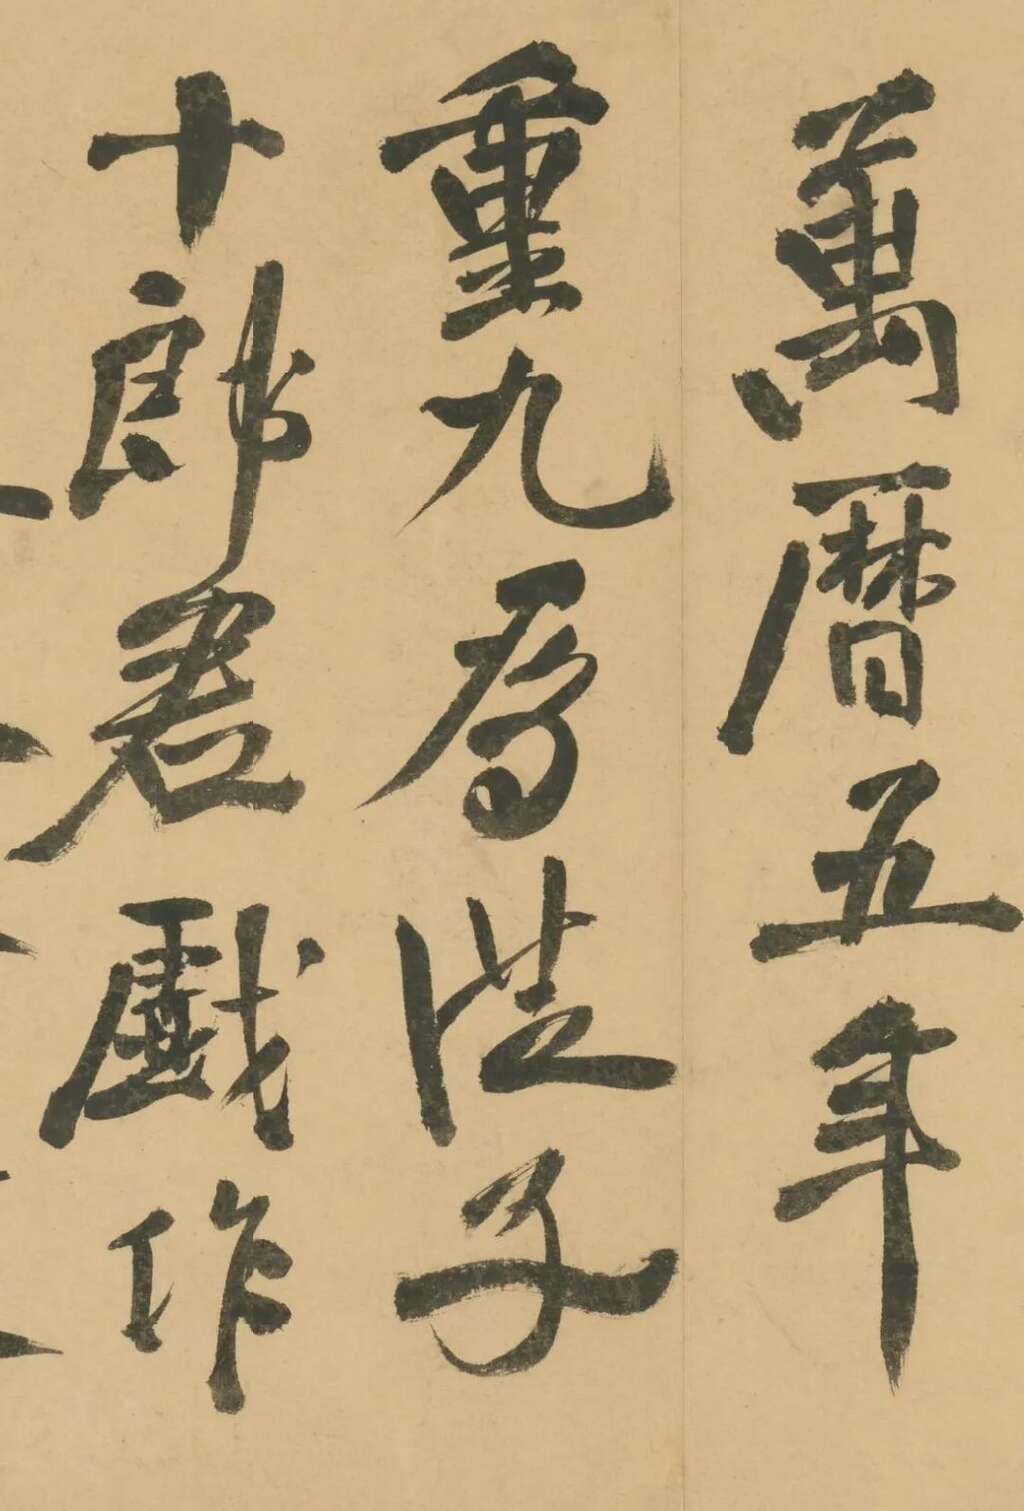 萬曆五年
重九爲子
十郎君戲作